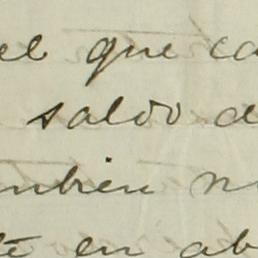 el que ca
saldo d
mbien n
té en ab